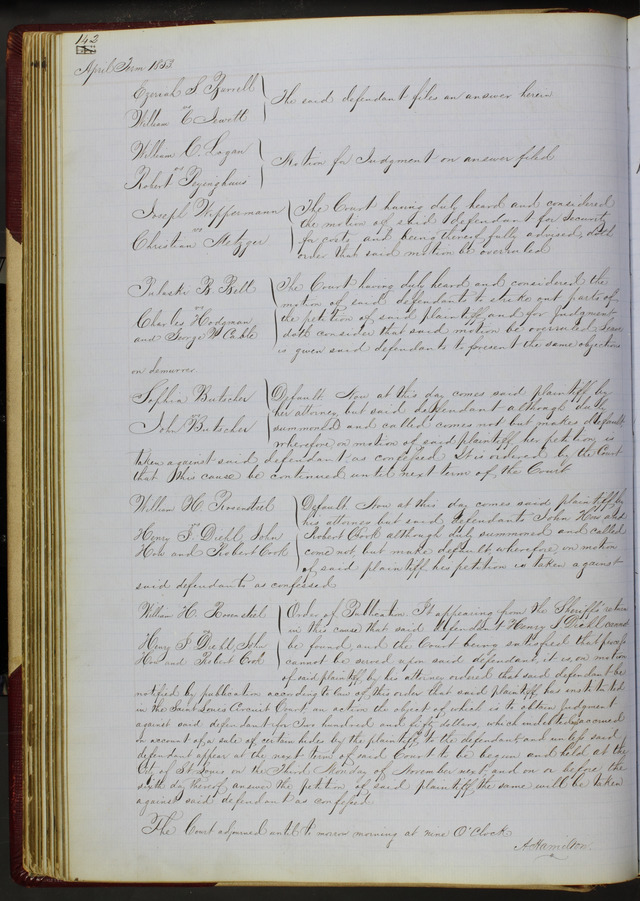 142
April Term 1853
Ezeriah S. Farrell
vs
William C Jewett
The said defendant files an answer herein
William C. Lagan
vs
Robert
Motion for Judgment on answer filed
Joseph Wippermann
vs
Christian Metzger
The Court having duly heard and considered
the motion of said defendant for security
for costs, and being thereof fully advised, doth
order that said motion be overruled
Pulaski R Belt
vs
Charles Hodgman
and George W Cable
The Court having duly heard and considered the
motion of said defendants to strike out parts of
the petition of said plaintiff and for Judgment
doth consider that said motion be overruled Leave
is given said defendants to present the same objections
on demurrer
Sophia Butscher
vs
John Butscher
Default Now at this day comes said plaintiff by
her attorney but said defendant although duly
summoned and called comes not but makes default
wherefore on motion of said plaintiff her petition is
taken against said defendant as confessed It is ordered by the Court
that this cause be continued until next term of the Court
William H. Rosensteel
vs
Henry F. Diehl, John
How and Robert Cook
Default Now at this day comes said plaintiff by
his attorney but said defendants John How and
Robert Cook although duly summoned and called
come not, but make default wherefore on motion
of said plaintiff his petition is taken against
said defendants as confessed
William H. Rosensteel
vs
Henry F Diehl, John
How and Robert Cook
Order of Publication It appearing from the Sheriffs return
in this cause that said defendant Henry F Diehl cannot
be found, and the Court being satisfied that process
cannot be served upon said defendant, it is on motion
of said plaintiff by his attorney ordered that said defendant be
notified by publication according to law of this order that said plaintiff has instituted
in the Saint Louis Circuit Court an action the object of which is to obtain judgment
against said defendant for Two hundred and fifty dollars, which indebtedness accrued
on account of a sale of certain hides by the plaintiff to the defendant, and unless said
defendant appear at the next term of said Court to be begun and held at the
City of St Louis on the Third Monday of November next, and on or before the
sixth day thereof answer the petition of said plaintiff, the same will be taken
against said defendant as confessed
The Court adjourned until to morrow morning at nine O'Clock
A Hamilton